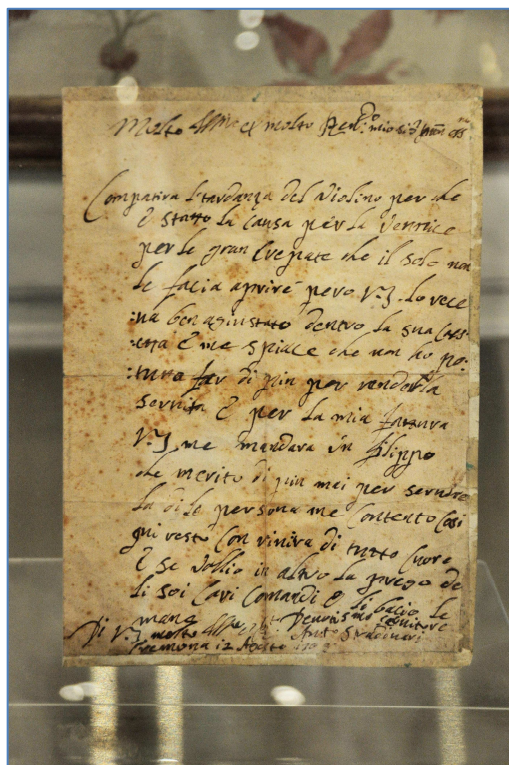 Molto Illre et molto Rerdo mio sigr
Compatira l tardanza del violino per che
è statto la causa per la vernice
per le gran crepate che il sole non
le facia aprire pero V.S. lo rece
:na ben agiustato dentro la sua Cas-
:setta è me spiace che non ho po-
:tuto far di piu per renderla
servita è per la mia fattura
V.S. me mandara un filippo
che merito di piu mei per servire
la di le persona me Contento Cosi
qui resto Con riviva di tutto Cuore
è se vallio in altro la prego de
li soi Cari Comandi e li bacio le
mane
Di V.S. molto Illre servitore
Anto Stradivari
Cremona 12 Agosto